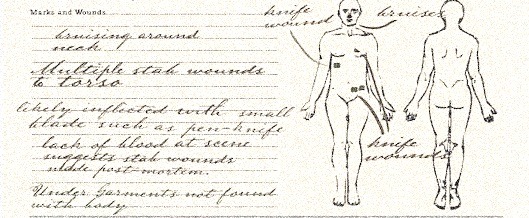 Marks and Wounds
bruising around
neck
Multiple stab wounds
to torso
likely inflicted with small
blade such as pen-knife
lack of blood at scene
suggests stab wounds
made post-mortem.
Under Garments not found
with body
knife
wound
bruises
knife
wounds